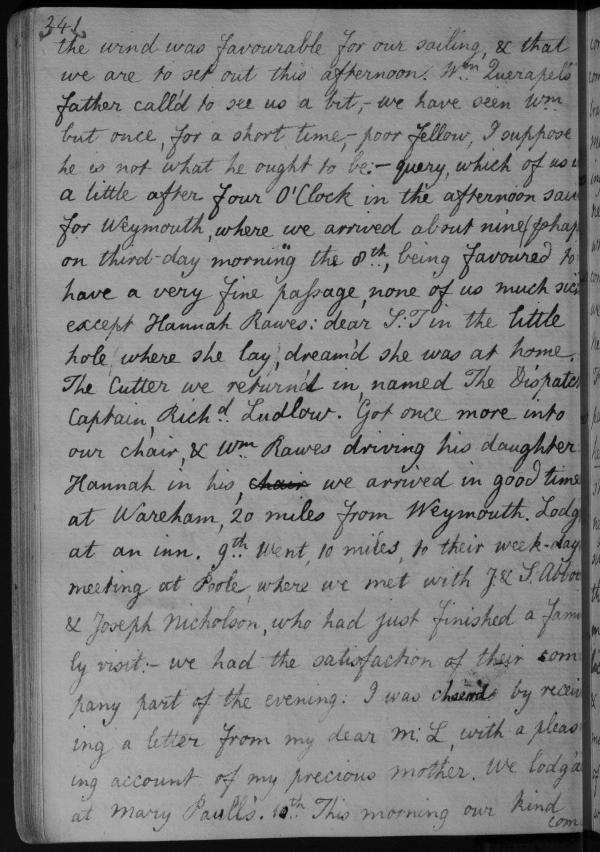 241
the wind was favourable for our sailing, & that
we are to set out this afternoon. Wm. Querapels
father call'd to see us a bit,- we have seen Wm
but once, for a short time,- poor fellow, I suppose
he is not what he ought to be:- query, which of us
a little after four O'Clock in the afternoon
for Weymouth, where we arrived about nine
on third-day morning the 8th, being favoured to
have a very fine passage, none of us much
except Hannah Rawes: dear S:T in the little
hole, where she lay, dream'd she was at home.
The Cutter we return'd in, named The Dispatch
Captain, Richd. Ludlow. Got once more into
our chair, & Wm Rawes driving his daughter
Hannah in his, chair we arrived in good time
at Wareham, 20 miles from Weymouth. Lodg
at an inn. 9th Went, 10 miles, to their week-day
meeting at Poole, where we met with J & S.
& Joseph Nicholson, who had just finished a fami
ly visit:- we had the satisfaction of their com
pany part of the evening: I was cheer'd by receiv
ing a letter from my dear M: L, with a pleas
ing account of my precious mother. We lodg'd
at Mary Paull's. 10th This morning our kind
com